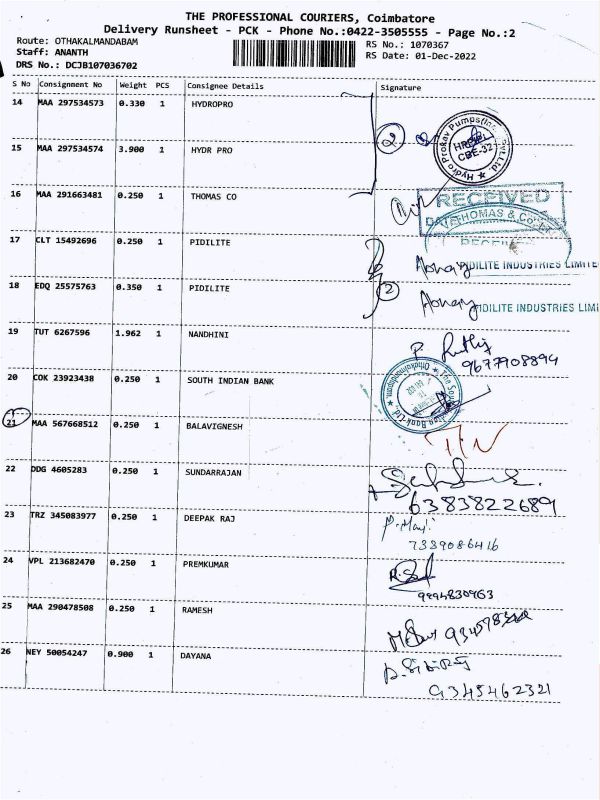 THE PROFESSIONAL COURIERS, Coimbatore
Delivery Runsheet - PCK - Phone No.:0422-3505555 - Page No.:2
Route: OTHAKALMANDABAM
RS No.: 1070367
Staff: ANANTH
RS Date: 01-Dec-2022
DRS No.: DCJB107036702
S No Consignment No Weight PCS Consignee Details Signature
14 MAA 297534573 0.330 1 HYDROPRO
15 MAA 297534574 3.900 1 HYDR PRO
2
Hydro Prokav Pumps
CBE-32
16 MAA 291663481 0.250 1 THOMAS CO
RECEIVED
THOMAS & Co
17 CLT 15492696 0.250 1 PIDILITE
PIDILITE INDUSTRIES LIMITE
18 EDQ 25575763 0.350 1 PIDILITE
2
PIDILITE INDUSTRIES LIMI
19 TUT 6267596 1.962 1 NANDHINI
9677908894
20 COK 23923438 0.250 1 SOUTH INDIAN BANK
21 MAA 567668512 0.250 1 BALAVIGNESH
22 DDG 4605283 0.250 1 SUNDARRAJAN
6383822689
23 TRZ 345083977 0.250 1 DEEPAK RAJ
7339086416
24 VPL 213682470 0.250 1 PREMKUMAR
9994830963
25 MAA 290478508 0.250 1 RAMESH
26 NEY 50054247 0.900 1 DAYANA
9345462321